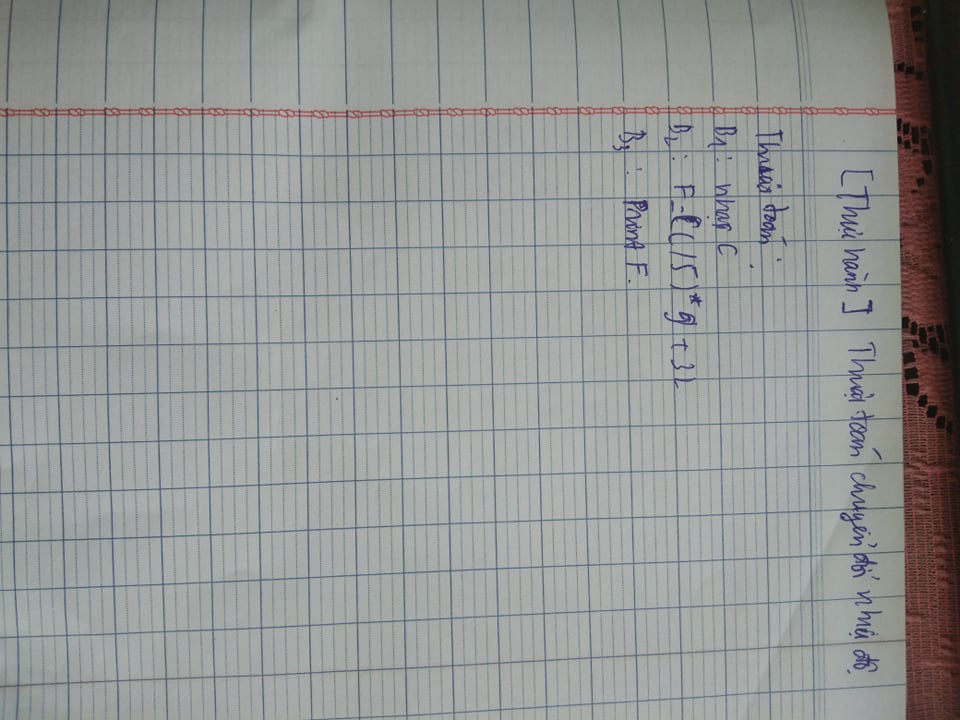 [Thực hành] Thuật toán chuyển đổi nhiệt độ
Thuật toán:
B1: nhập C
B2: F=C(/5)*9+32
B3: Print F.